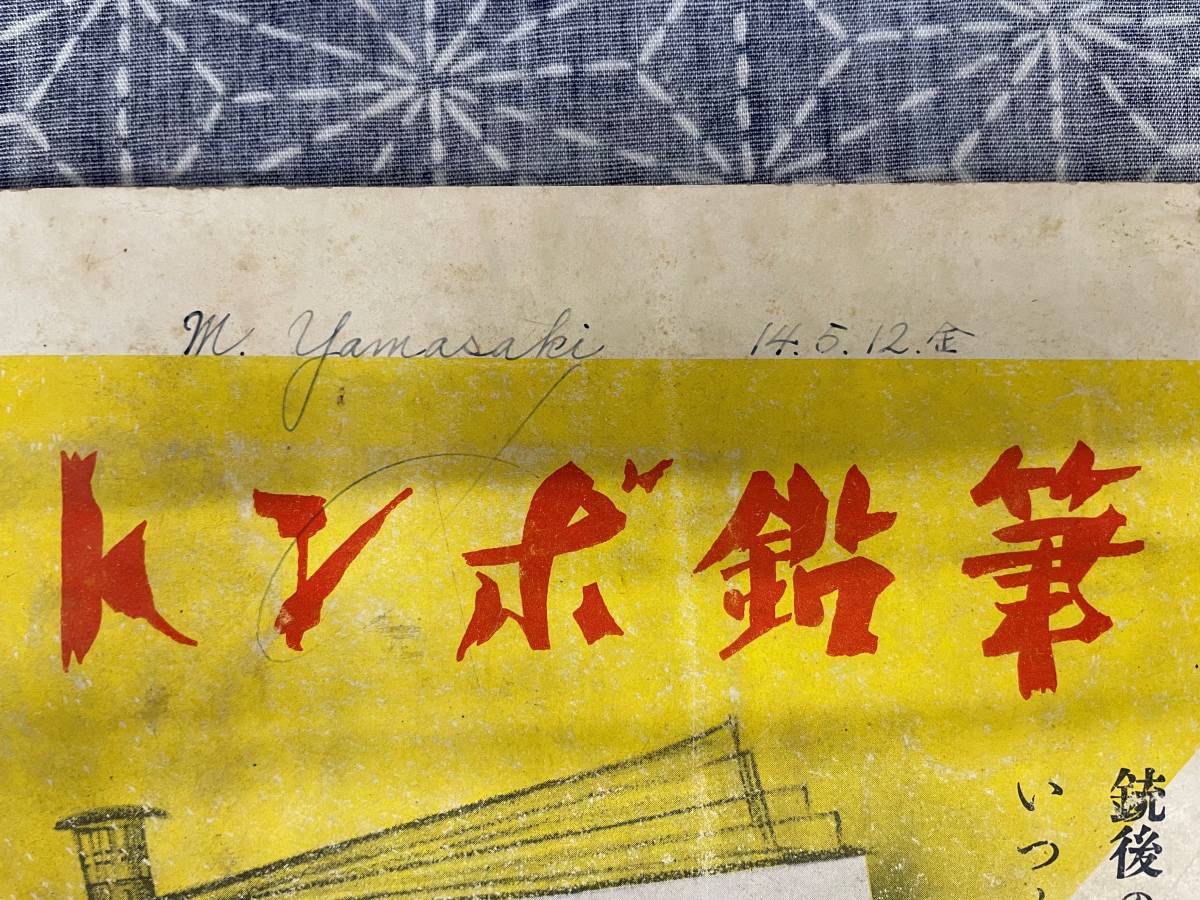 M. Yamasaki 14.5.12.金
トンボ鉛筆
銃後の
いつ